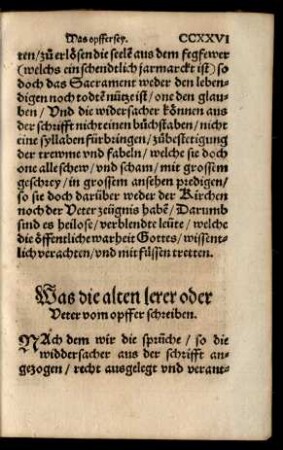 Was opffer sey. CCXXVI
ten/zů erlösen die seelẽ aus dem fegfewer
(welchs ein schendtlich jarmarckt ist) so
doch das Sacrament weder den leben-
digen noch todtẽ nütze ist/one den glau-
ben/Vnd die widersacher können aus
der schrifft nicht einen bůchstaben/nicht
eine syllaben fürbringen/zůbestetigung
der trewme vnd fabeln/welche sie doch
one alle schew/vnd scham/mit grossem
geschrey/in grossem ansehen predigen/
so sie doch darüber weder der Kirchen
noch der Veter zeügnis habẽ/Darumb
sind es heilose/verblendte leüte/welche
die öffentliche warheit Gottes/wissent-
lich verachten/vnd mit füssen tretten.
Was die alten lerer oder
Veter vom opffer schreiben.
NAch dem wir die sprüche/so die
widdersacher aus der schrifft an-
gezogen/recht ausgelegt vnd verant-